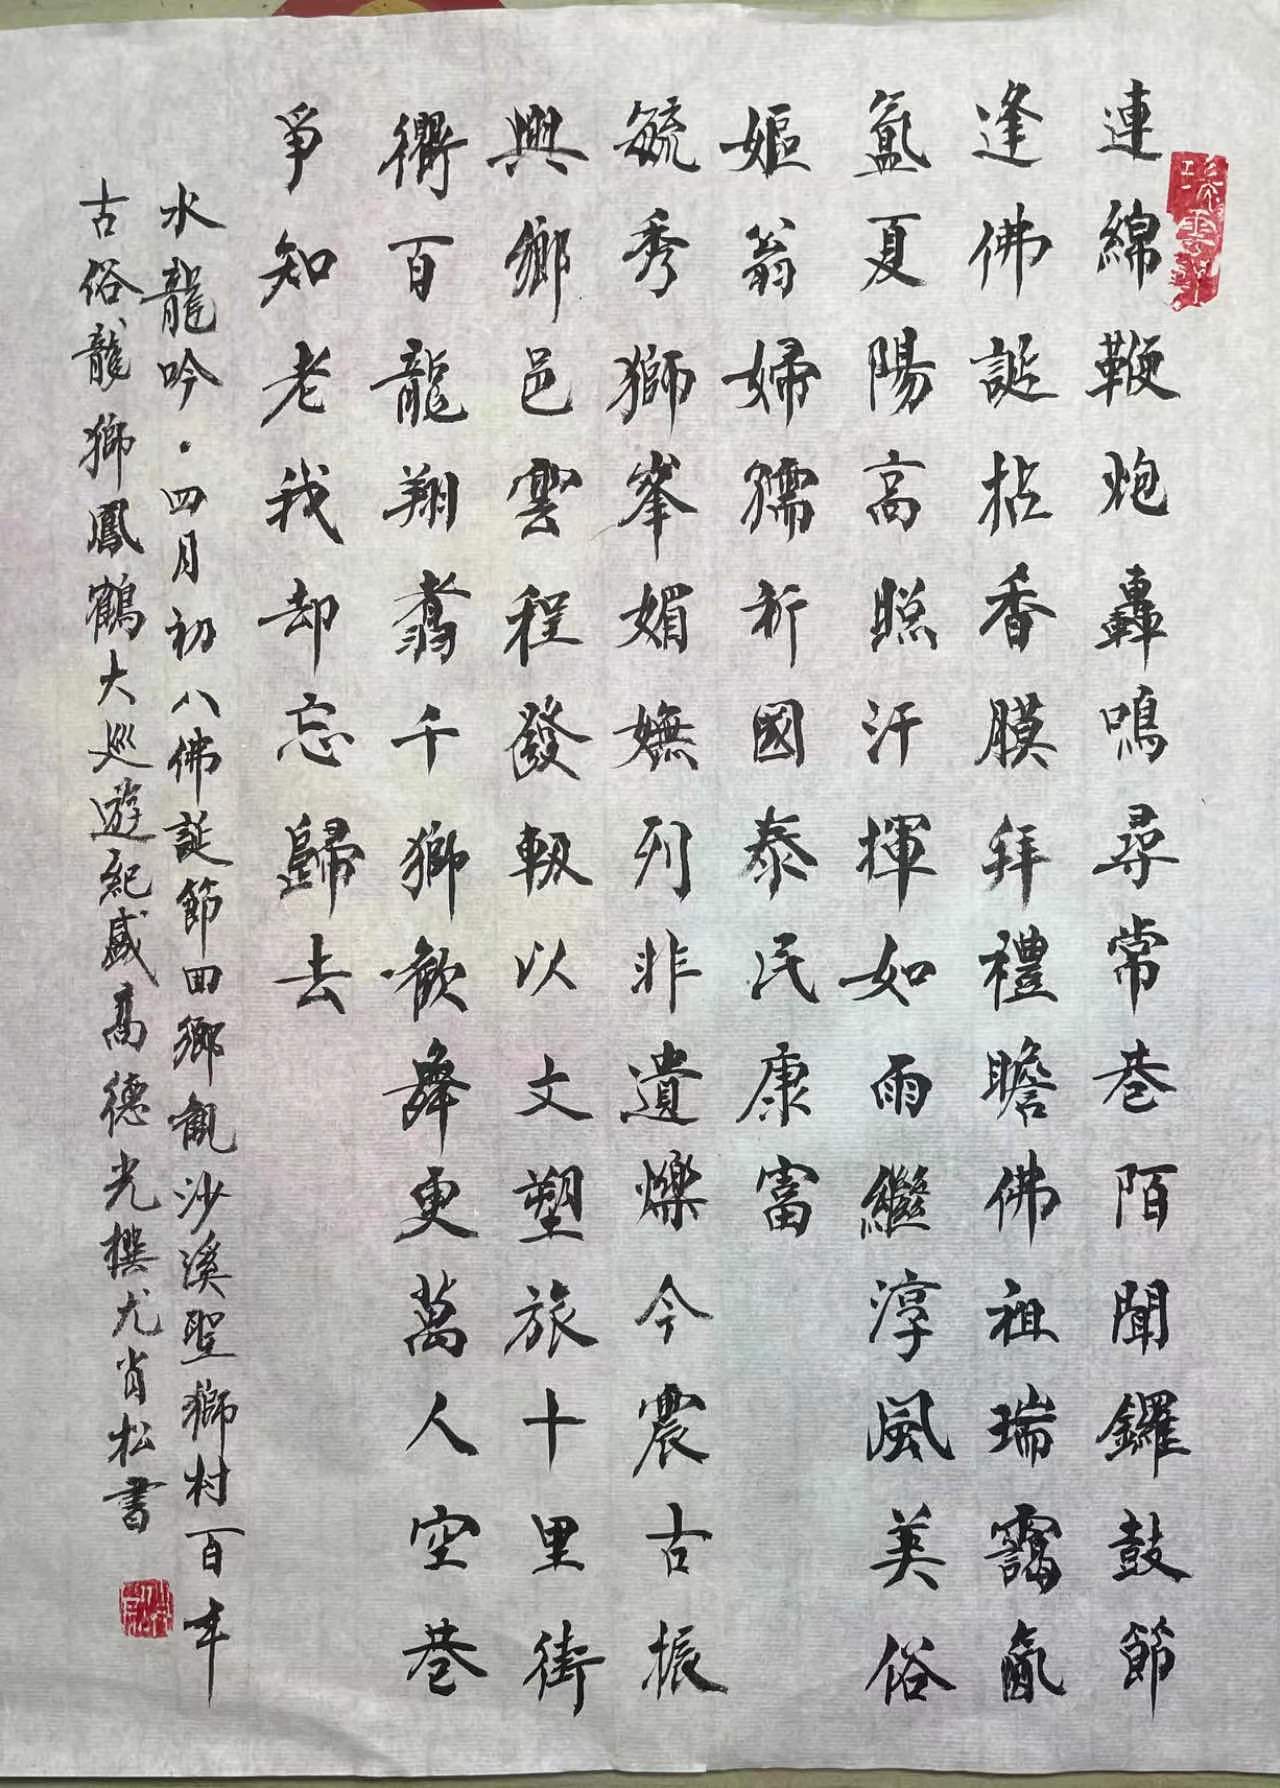 連綿鞭炮轟鳴尋常巷陌聞鑼鼓節
逢佛誕拈香膜拜禮瞻佛祖瑞靄氤
氳夏陽高照汗揮如雨繼淳風美俗
嫗翁婦孺祈國泰民康富
毓秀獅峯媚嫵列非遺爍今震古振
興鄉邑雲程發軔以文塑旅十里街
衢百龍翔翥千獅歡舞更萬人空巷
爭知老我却忘歸去
水龍吟·四月初八佛誕節回鄉觀沙溪聖獅村百年
古俗龍獅鳳鶴大巡遊紀盛高德光撰尤肖松書